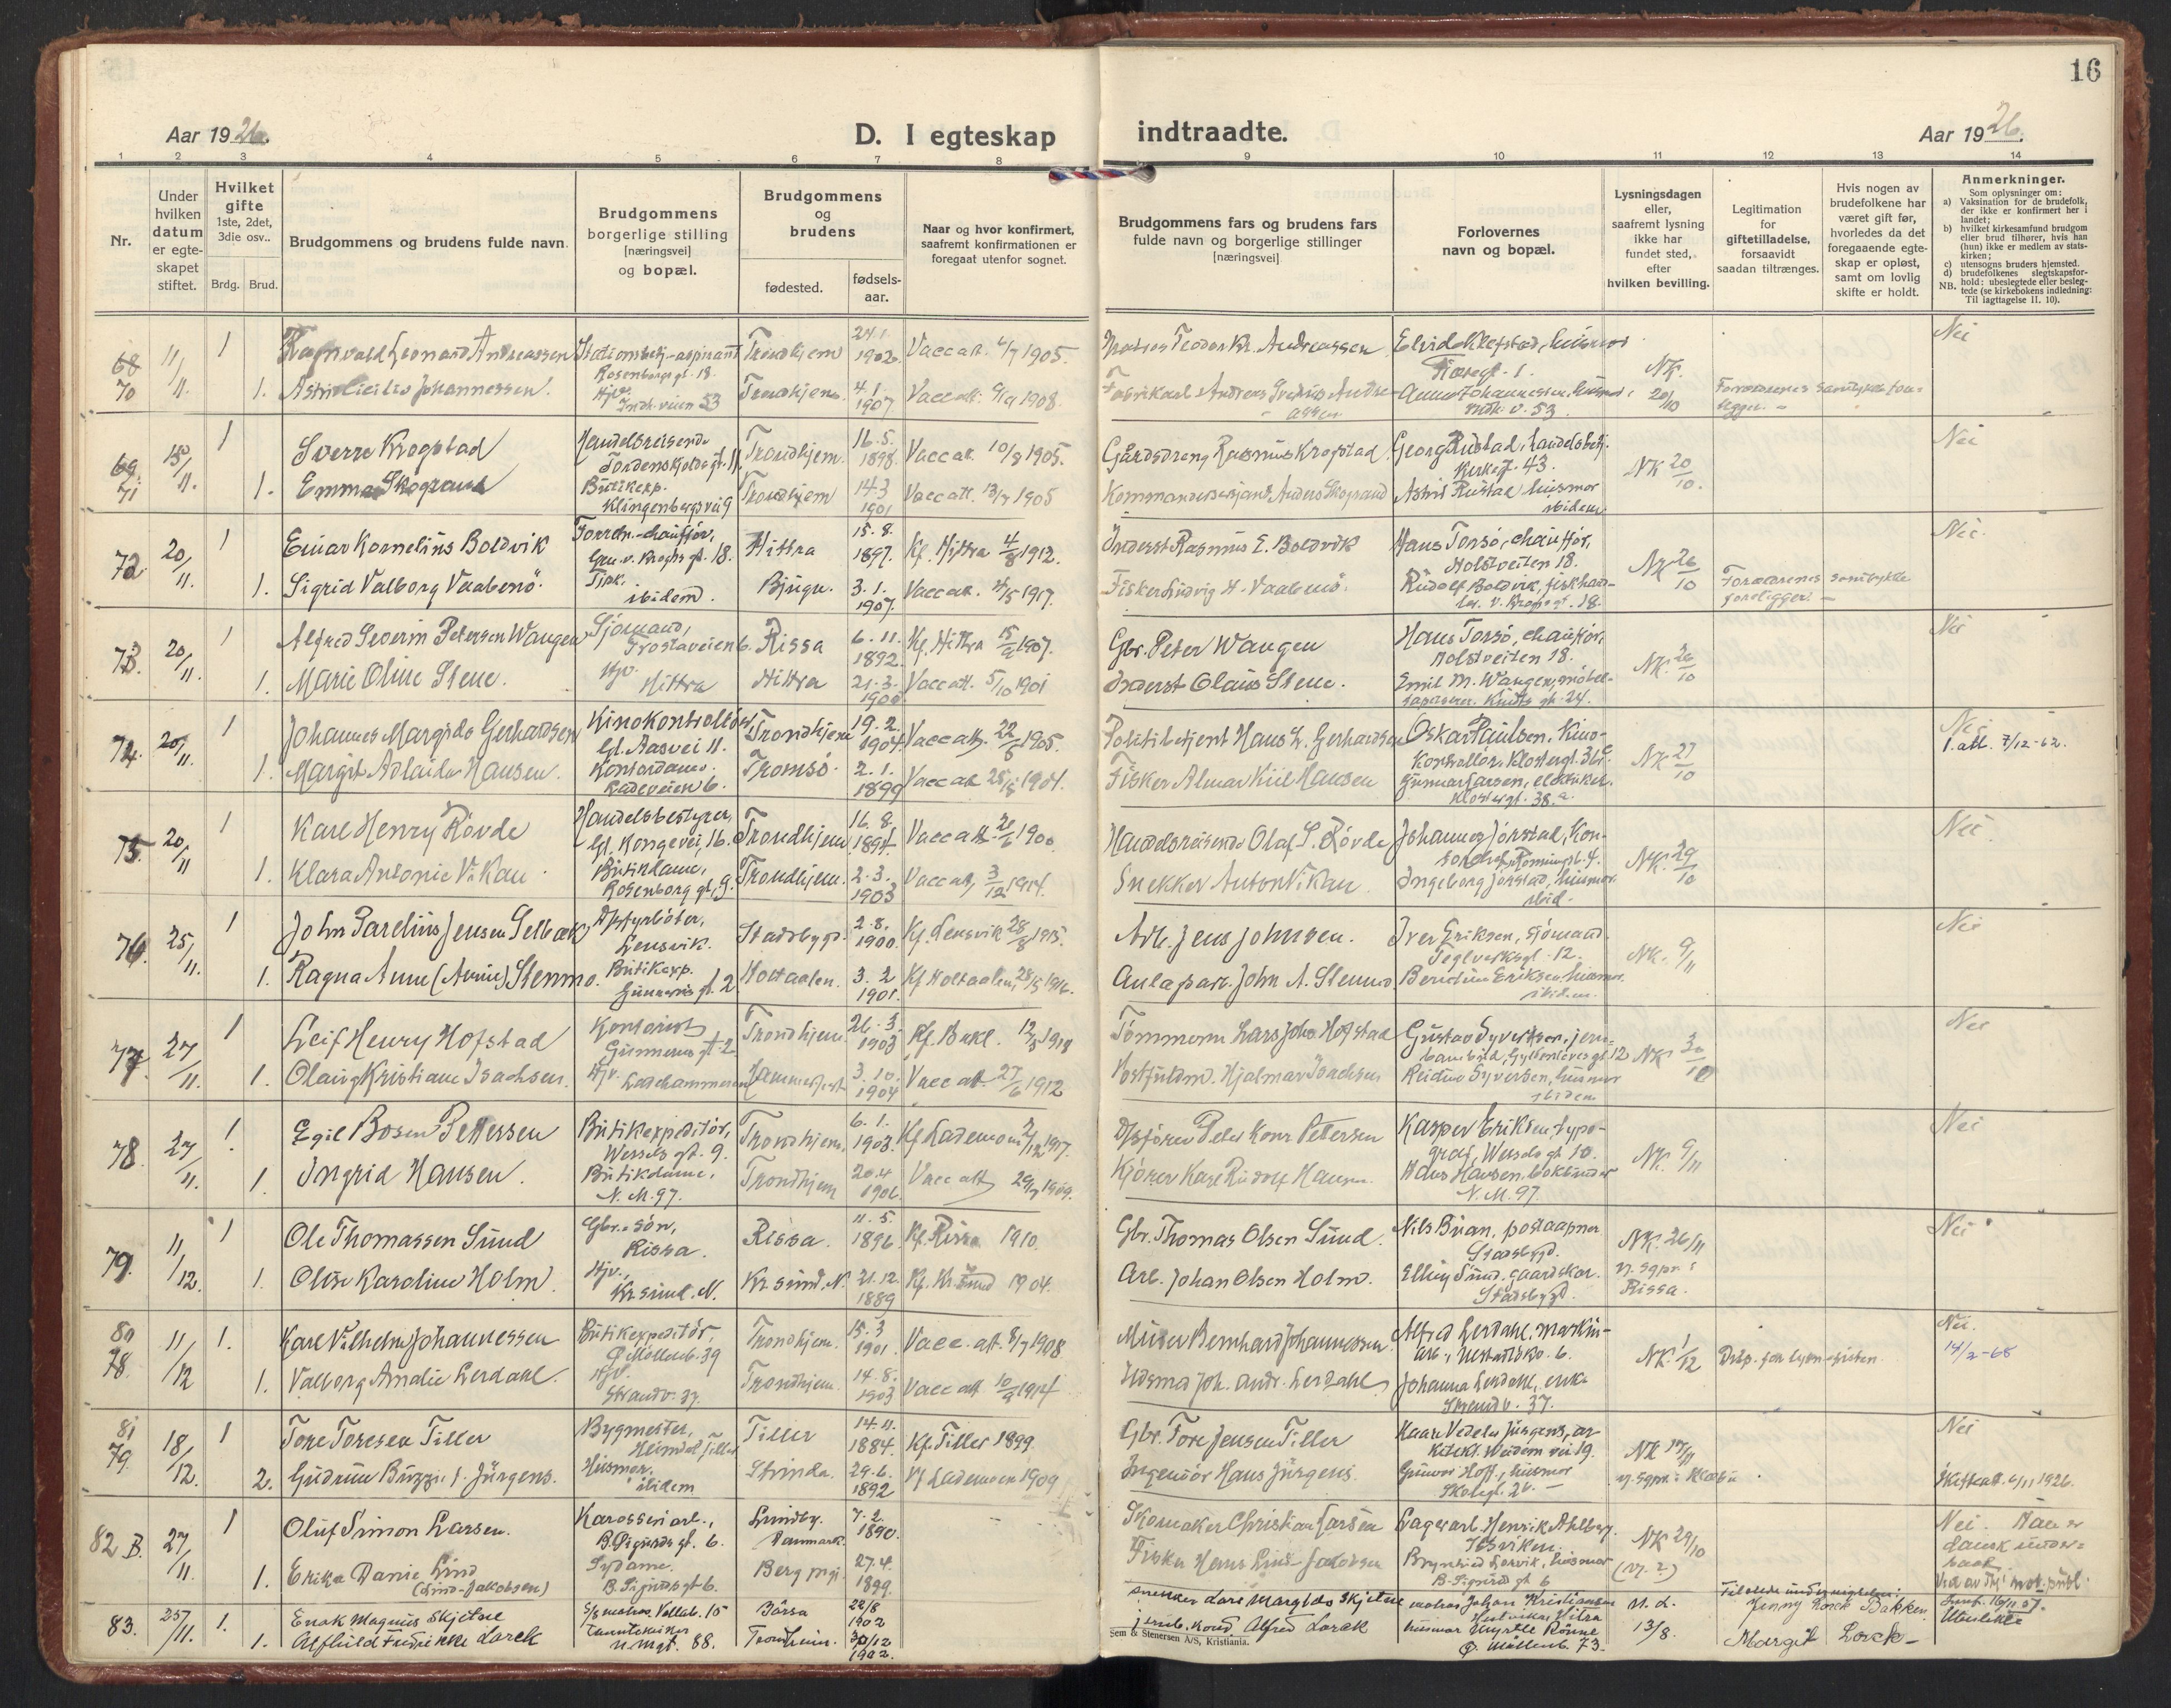 16
Aar 1926.
D. I egteskap
indtraadte.
Aar 1926.
1 2 3 4 5 6 7 8 9 10 11 12 13 14
Nr.
Under hvilken datum er egte-skapet stiftet.
Hvilket gifte 1ste, 2det, 3die osv..
Brdg. Brud.
Brudgommens og brudens fulde navn.
Brudgommens borgerlige stilling [næringsvei] og bopæl.
Brudgommens og brudens
fødested.
fødsels-aar.
Naar og hvor konfirmert, saafremt konfirmationen er foregaat utenfor sognet.
Brudgommens fars og brudens fars fulde navn og borgerlige stillinger [næringsvei]
Forlovernes navn og bopæl.
Lysningsdagen eller, saafremt lysning ikke har fundet sted, efter hvilken bevilling.
Legitimation for giftetilladelse, forsaavidt saadan tiltrænges.
Hvis nogen av brudefolkene har været gift før, hvorledes da det foregaaende egte-skap er opløst, samt om lovlig skifte er holdt.
Anmerkninger.
Som oplysninger om:
a) Vaksination for de brudefolk, der ikke er konfirmert her i landet;
b) hvilket kirkesamfund brudgom eller brud tilhører, hvis han (hun) ikke er medlem av stats-kirken;
c) utensogns bruders hjemsted.
d) brudefolkenes slegtskapsfor-hold: ubeslegtede eller besleg-tede (se kirkebokens indledning:
NB. Til iagttagelse II. 10).
68 11/ 1 Ragnvald Leonard Andreassen Trondhjem 24.1. 1902 Vacc att. 1905. Teodor Kr. Andreassen Nei
70 11. 1. Astrid Cicilie Johannessen. Hjv. Indh. veien 53 Trondhjem 4.1. 1907 Vacc att. 1908. Anna Johannessen, husmor Indh. v. 53. NK. 20/10
69 15/ 1 Sverre Krogstad Handelsreisende Tordenskjolds gt. 11. Trondhjem. 16.5. 1898. Vacc att. 10/8 1905. Gårdsdreng Rasmus Krogstad Georg Rustad, handelsbetj. Kirkegt. 43. NK 20/10. Nei
71 11. 1. Emma Skogrand Butikexp. Klingenbergsvei 9 Trondhjem 14.3 1901 Vacc att. 1905 Kommandersersjant Anders Skogrand Astrid Rustad husmor ibidem
72. 20/11. 1 Einar Kornelius Boldvik Forretn.-chauffør, Gen. v. Kroghs gt. 18. Hittra 15.8. 1897. Kf. Hittra 4/8 1912. Inderst Rasmus E. Boldvik Hans Torsø, chauffør, Holstveiten 18. NK 26/10 Nei
1. Sigrid Valborg Vaabenø. ibidem. Bjugn. 3.1. 1907. Vacc att. 1917. Fisker Ludvig H. Vaabenø. Rudolf Boldvik, fiskhand-ler. v. Kroghsgt. 18. Forældrenes samtykke foreligger. -
73. 20/11. 1 Alfred Severin Petersen Wangen Sjømand, Frostaveien 6. Rissa 6.11. 1892. Kf. Hittra 1907. Gbr. Peter Wangen Hans Torsø, chauffør, Holstveiten 18. NK. 26/10 Nei
1. Marie Oline Stene. Hjv. Hittra Hittra 21.3. 1900. Vacc att. 5/10 1901 Inderst Olaus Stene. Emil M. Wangen, møbel-tapserer. Knuts gt. 24.
74. 20/11. 1 Johannes Margido Gerhardsen Kinokontrollør Gl. Aasvei 11. Trondhjem 19.2. 1904 Vacc att. 22/6 1905. Politibetjent Hans L. Gerhardsen Oskar Paulsen, Kino-kontrollør, Klostergt. NK 27/10 Nei 1. att. 7/12-62.
1 Margit Adlaida Hansen. Kontordame. Ladeveien 6. Tromsø. 2.1. 1899 Vacc att. 1901. Fisker Almar Kiil Hansen Gunnar Larsen, elektriker. Klostergt. 38. a.
75. 20/11 1 Karl Henry Røvde Handelsbestyrer, Gl. Kongevei, 16. Trondhjem 16.8. 1894. Vacc att. 1900 Handelsreisende Olaf S. Røvde Johannes Jørstad, NK. 29/10 Nei
1. Klara Antonie Vikan Butikdame, Rosenborg gt. 9. Trondhjem. 2.3. 1903 Vacc att, 3/12 1914. Snekker Anton Vikan Ingeborg Jørstad, husmor. ibid.
76. 25/11. 1 John Parelius Jensen Selbæk Lensvik. Stadsbygd. 2.8. 1900. Kf. Lensvik 28/8 1915. Arb. Jens Johnsen. Iver Eriksen, sjømand Teglverksgt. 12. NK. 9/11 Nei
1. Ragna Anne (Annie) Stenmo. Butikexp. Gunnerus gt. 2. Holtaalen. 3.2 1901. Kf Holtaalen, 1916. John A. Stenmo Eriksen, husmor. ibidem.
77. 27/11. 1 Leif Henry Hofstad Kontorist Gunnerus gt. 2 Trondhjem. 26.3. 1903 Kf. Bakl. 1918 Tømmerm Lars Johs Hofstad Gustav Syvertsen, jern-banebud, Gyldenløves gt 12 NK 30/10 Nei
1. Olaug Kristiane Isachsen. Hjv. Hammerfest 3.10. 1904 Vacc att. 27/6 1912 Postfuldm. Hjalmar Isachsen Reidun Syversen, husmor ibidem
78. 27/11. 1. Egil Bosen Pettersen Butikexpeditør, Wessels gt. 9. Trondhjem. 6.1. 1903. Kf Lademoen 1917. Peter Konr Petersen Kasper Eriksen, typo-graf, Wessels gt 10. NK. 9/11 Nei
1. Ingrid Hansen. Butikdame, N. M. 97. Trondhjem 20.4 1906. Vacc att 1909. Kjører Karl Rudolf Hansen. Hans Hansen, bokbinder N. M. 97.
79. 11/12. 1 Ole Thomassen Sund Gbr. søn, Rissa. Rissa. 11.5. 1896. Kf. Rissa 1910. Gbr. Thomas Olsen Sund. Nils Buan, postaapner Stadsbygd. NK. 26/11 Nei
1. Oline Karoline Holm Hjv., Kr.sund. N. Kr.sund. N. 21.12. 1889 Kf. Kr.sund 1904. Arb. Johan Olsen Holm. Elling Sund. gaardskar. Stadsbygd. Rissa.
80 78. 11/12 1. Karl Vilhelm Johannessen Butikexpeditør, Ø. Møllenb. 39 Trondhjem. 15.3 1901. Vacc. att. 8/7 1908 Murer Bernhard Johannessen. Alfred Lerdahl, maskin-arb., 6. NK. 1/12 Disp. for lysn. fristen. Nei. 14/2-68
1. Valborg Amalie Lerdahl. Hjv. Strandv. 37. Trondhjem 14.8. 1903 Vacc att 1914 Joh. Andr. Lerdahl Johanna Lerdahl, enke Strandv. 37.
81 79. 18/12. 1 Tore Toresen Tiller Bygmester, Heimdal, Tiller Tiller 14.11. 1884. Kf. Tiller 1899. Gbr. Tore Jensen Tiller Kaare Vedeler Jürgens, ar-kitekt. 19. NK 17/11 Nei
2. Gudrun Buzzi f. Jürgens. Husmor. ibidem Strinda. 29.6. 1892 Kf Lademoen 1909 Ingeniør Hans Jürgens. Gunvor Hoff, husmor Skolegt. 26. - Skifteatt. 6/11 1926.
82 B. 27/11 1 Oluf Simon Larsen. Karosseriarb., B. Sigurds gt. 6. Danmark. 7.2. 1890. Skomaker Christian Larsen Lagerarb. Henrik Ahlberg. Ilsviken. NK 29/10 Nei. Han er dansk under-saat
1. Erika Danie Lind (Lind-Jakobsen) Sydame. B. Sigurds gt. 6. Berg pgj. 27.4. 1899. Fisker Hans Lind-Jakobsen husmor B. Sigurds gt 6
83. 25/11. 1. Enok Magnus Skjetne 15 Børsa 22/8 1902 Snekker Lars Margido Skjetne Johan Kristiansen Hitra N. d. 13/8. Jenny Lorck Bakken.
1. Alfhild Lorck n. mgt. 88. Trondheim. 30/12 1902. Alfred Lorck husmor Myrtle Rønne Ø. Møllenb. 73. Margit Lorck -
Sem & Stenersen A/S, Kristiania.